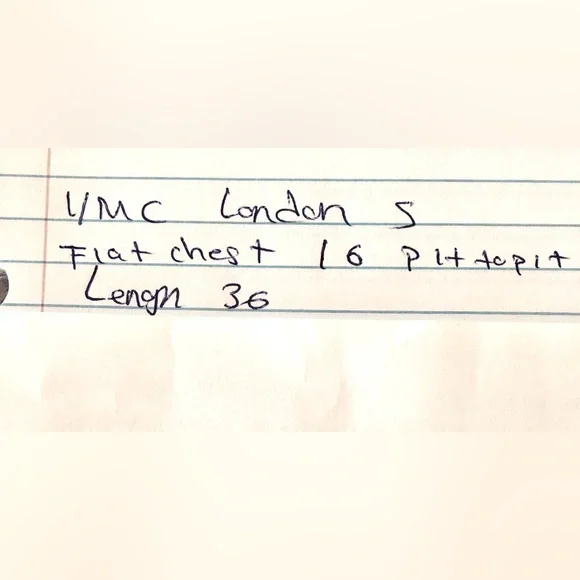 VMC London S
Flat chest 16 pit to pit
Lengh 36